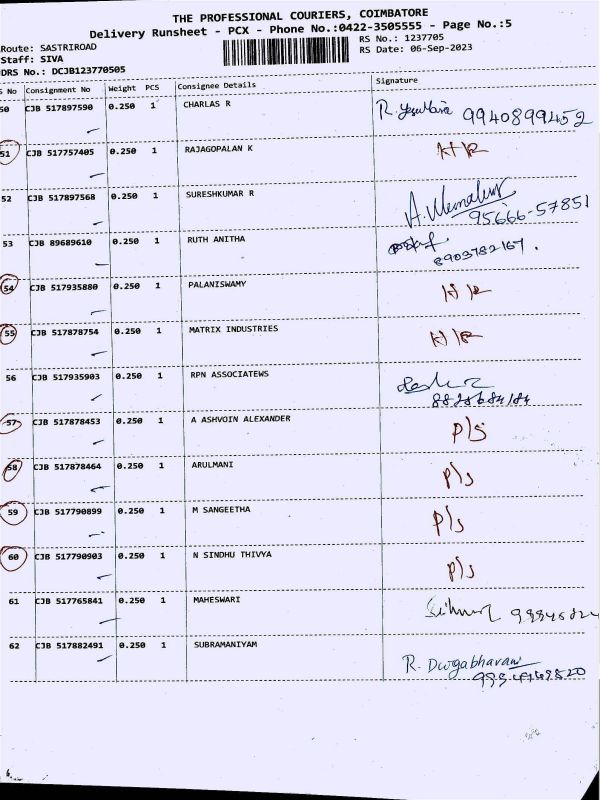 THE PROFESSIONAL COURIERS, COIMBATORE
Delivery Runsheet - PCX - Phone No.:0422-3505555 - Page No.:5
Route: SASTRIROAD RS No.: 1237705
Staff: SIVA RS Date: 06-Sep-2023
DRS No.: DCJB123770505
S No Consignment No Weight PCS Consignee Details Signature
50 CJB 517897590 0.250 1 CHARLAS R R. 9940899452
51 CJB 517757405 0.250 1 RAJAGOPALAN K
52 CJB 517897568 0.250 1 SURESHKUMAR R 95666-57851
53 CJB 89689610 0.250 1 RUTH ANITHA 8903782167.
54 CJB 517935880 0.250 1 PALANISWAMY
55 CJB 517878754 0.250 1 MATRIX INDUSTRIES
56 CJB 517935903 0.250 1 RPN ASSOCIATEWS
57 CJB 517878453 0.250 1 A ASHVOIN ALEXANDER P/S
58 CJB 517878464 0.250 1 ARULMANI P/s
59 CJB 517790899 0.250 1 M SANGEETHA P/s
60 CJB 517790903 0.250 1 N SINDHU THIVYA P/s
61 CJB 517765841 0.250 1 MAHESWARI
62 CJB 517882491 0.250 1 SUBRAMANIYAM R. Durgabhavani